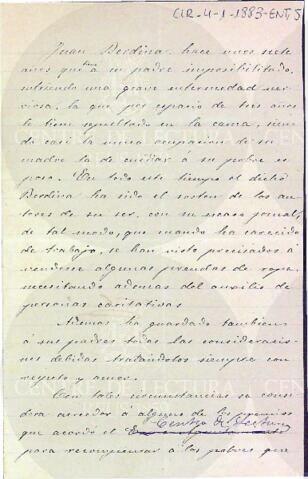 CIR-4-1-1883-ENT,5
Juan Berdina, hace unos siete
años que tiene á su padre imposibilitado,
sufriendo una grave enfermedad ner-
viosa, la que por espacio de tres años
le tiene sepultado en la cama, sien-
do casi la única ocupacion de su
madre la de cuidar á su pobre es-
poso. En todo este tiempo el dicho
Berdina ha sido el sosten de los au-
tores de su ser, con su escaso jornal,
de tal modo, que cuando ha carecido
de trabajo, se han visto precisados á
venderse algunas prendas de ropa,
necesitando ademas del auxilio de
personas caritativas.
Ademas ha guardado tambien
á sus padres todas las consideracio-
nes debidas tratándolos siempre con
respeto y amor.
Con tales circunstancias se consi-
dera acreedor á alguno de los premios
que acordó el Centro de Lectura
para recompensar á los pobres que
CENTRE DE LECTURA